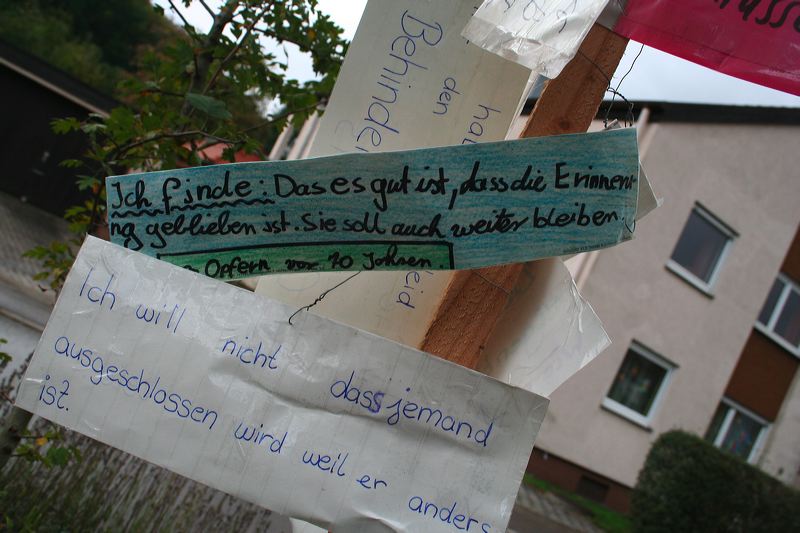 Behinder
den
hat
Ich finde: Das es gut ist, dass die Erinneru
ng geblieben ist. Sie soll auch weiter bleiben.
Opfern vor 70 Jahren
eid
Ich will nicht dass jemand
ausgeschlossen wird weil er anders
ist?